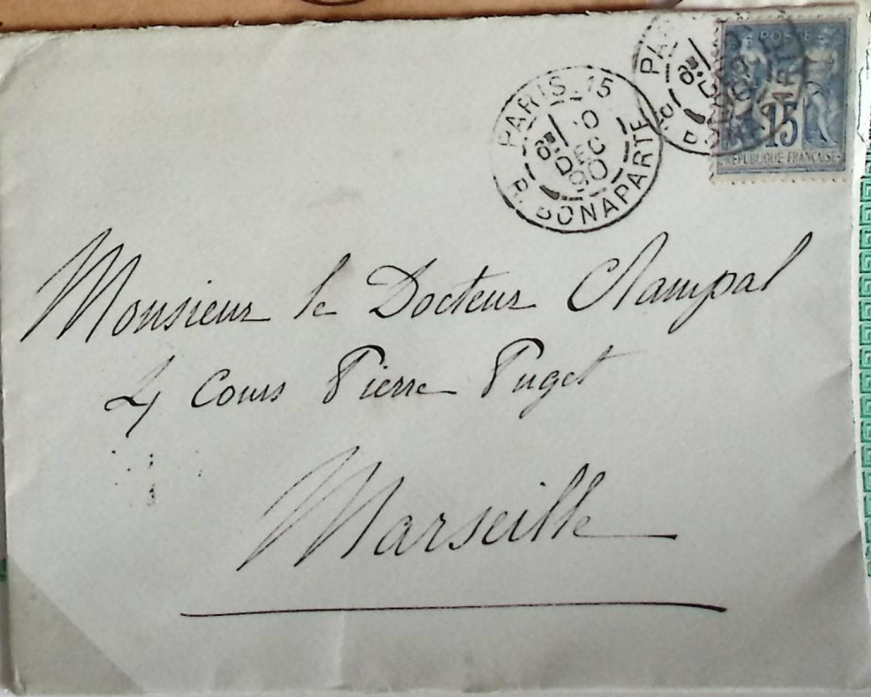 PARIS 15
6E
DEC
90
R. BONAPARTE
POSTE
15
REPUBLIQUE FRANÇAISE
Monsieur le Docteur Clampal
4 Cours Pierre Puget
Marseille